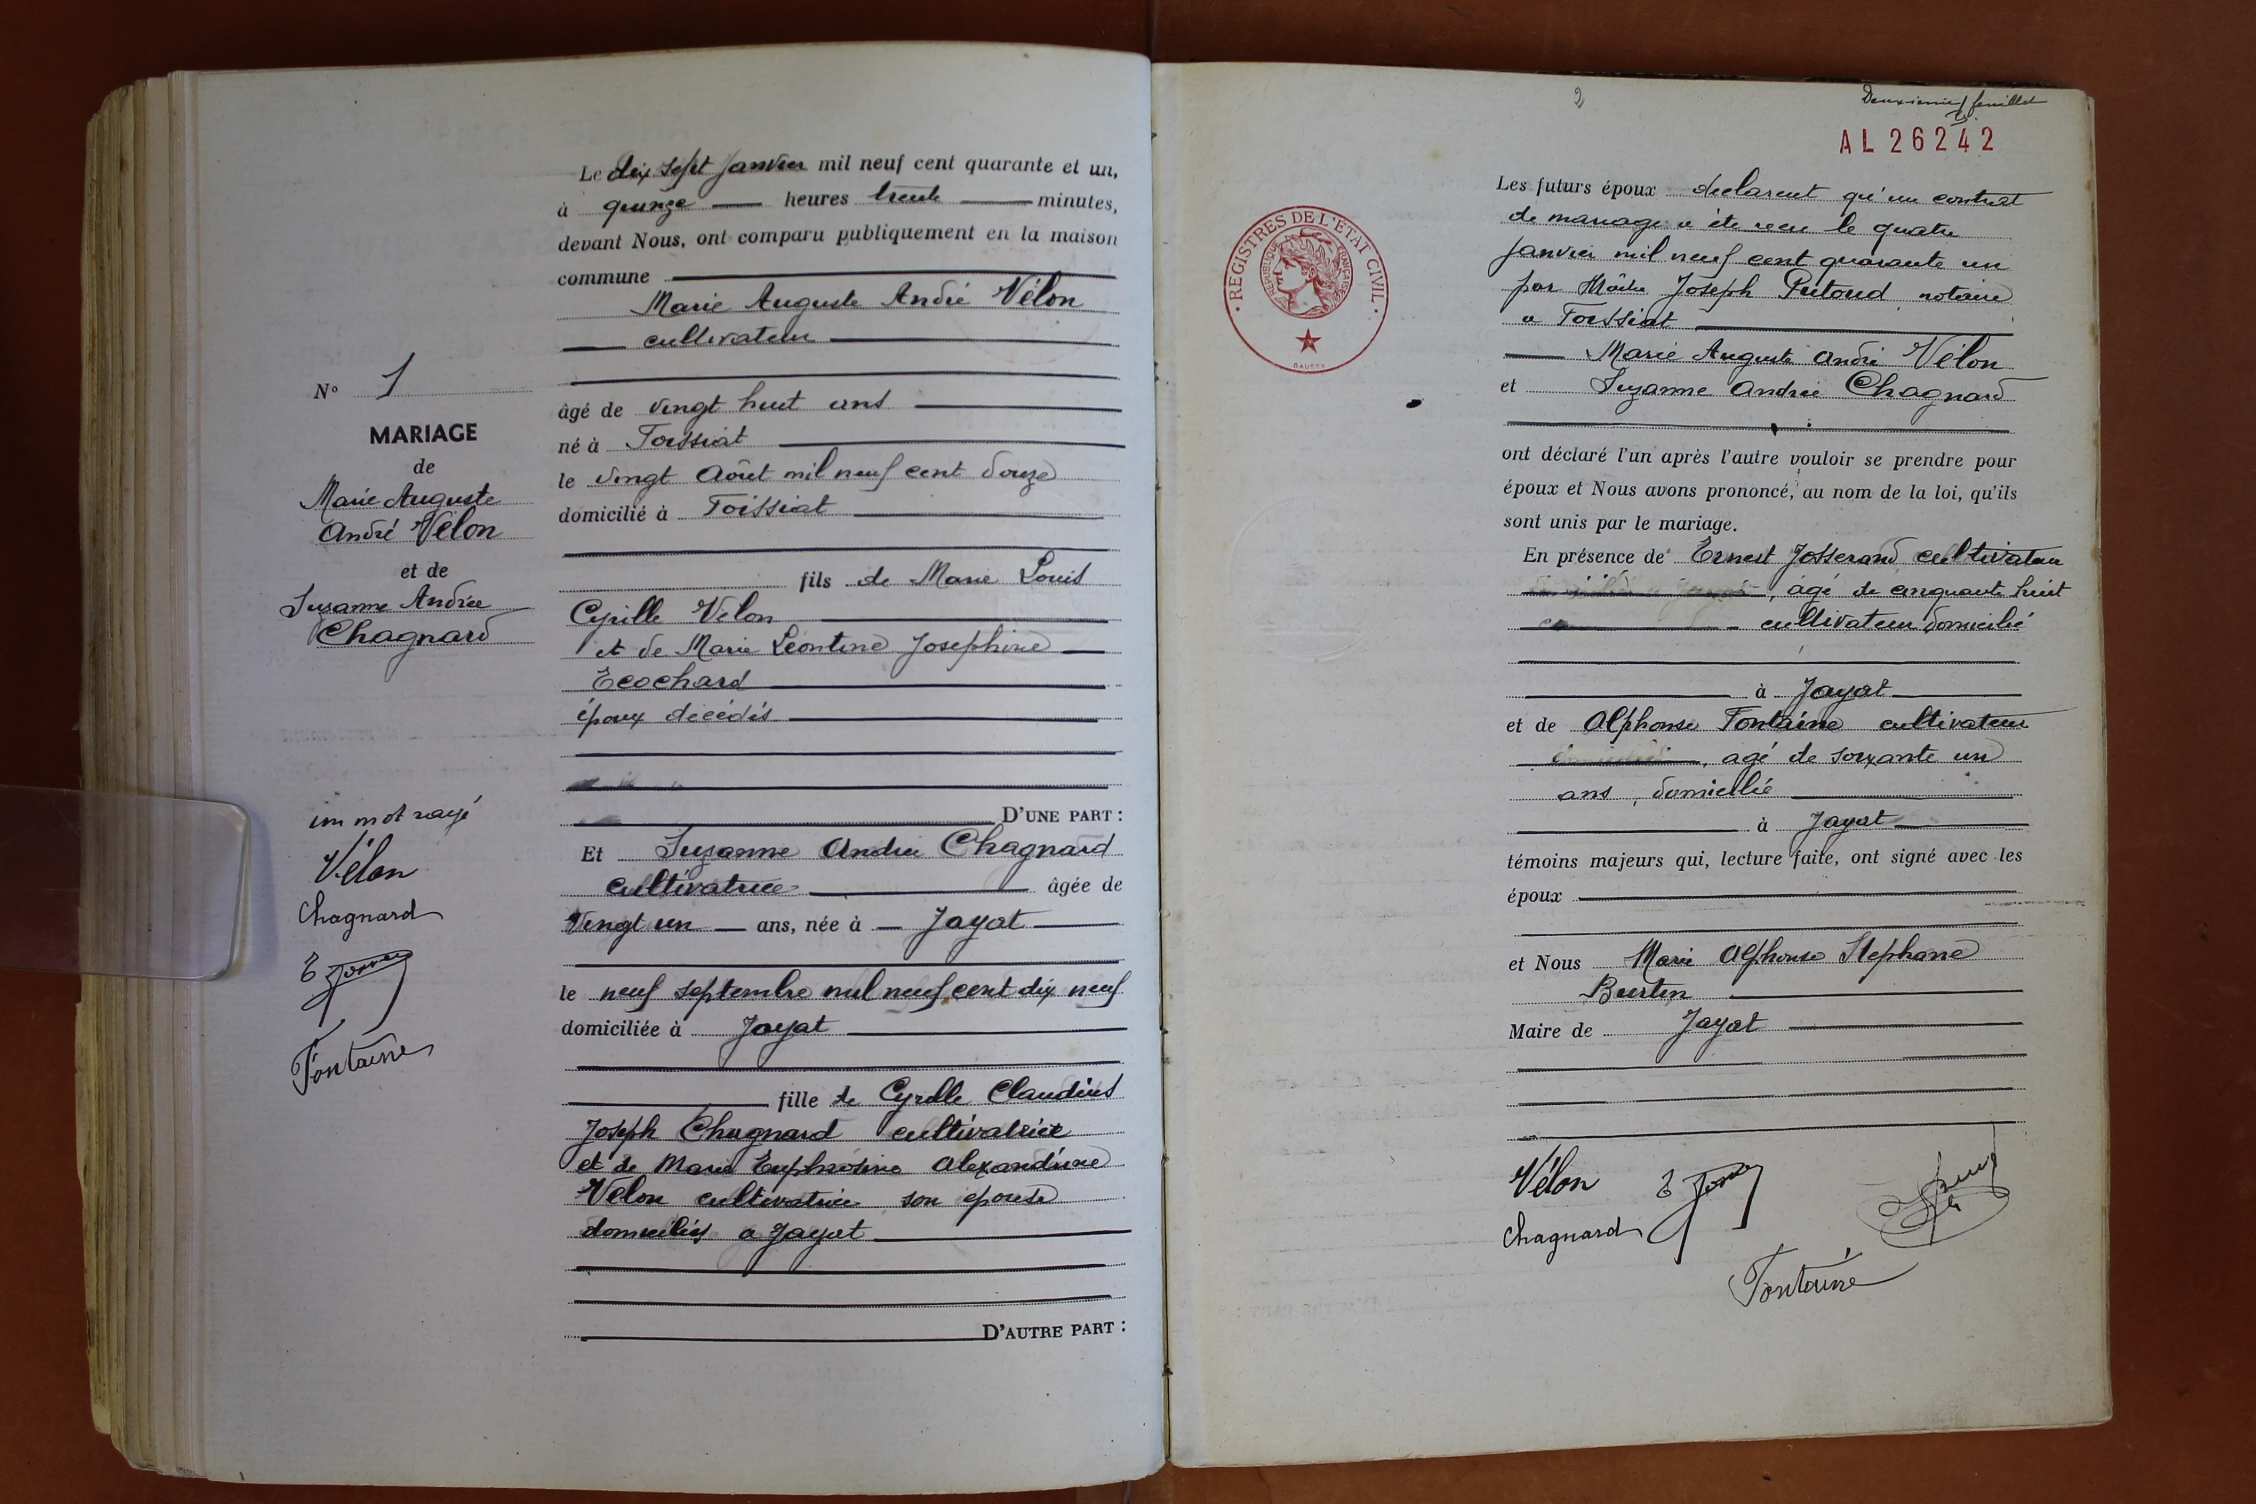 N° 1
MARIAGE
de
Marie Auguste
André Vélon
et de
Suzanne Andrée
Chagnard
un mot rayé
Vélon
Chagnard
Fontaine
Le dix sept Janvier mil neuf cent quarante et un,
à quinze heures trente minutes,
devant Nous, ont comparu publiquement en la maison
commune
Marie Auguste André Vélon
cultivateur
âgé de vingt huit ans
né à Foissiat
le vingt Août mil neuf cent douze
domicilié à Foissiat
fils de Marie Louis
Cyrille Vélon
et de Marie Léontine Josephine
Ecochard
époux décédés
D'UNE PART :
Et Suzanne Andrée Chagnard
cultivatrice âgée de
Vingt un ans, née à Jayat
le neuf septembre mil neuf cent dix neuf
domiciliée à Jayat
fille de Cyrille Claudius
Joseph Chagnard cultivatrice
et de Marie Euphrosine Alexandrine
Velon cultivatrice son épouse
domiciliés a Jayat
D'AUTRE PART :
2
Deuxième feuillet
AL 26242
REGISTRES DE L'ÉTAT CIVIL
RÉPUBLIQUE FRANÇAISE
Les futurs époux declarent qu'un contrat
de mariage a été recu le quatre
janvier mil neuf cent quarante un
par Maître Joseph Putoud notaire
a Foissiat
Marie Auguste André Vélon
et Suzanne Andrée Chagnard
ont déclaré l'un après l'autre vouloir se prendre pour
époux et Nous avons prononcé, au nom de la loi, qu'ils
sont unis par le mariage.
En présence de Ernest Josserand cultivateur
, âgé de cinquante huit
cultivateur domicilié
à Jayat
et de Alphonse Fontaine cultivateur
, agé de soixante un
ans, domicilié
à Jayat
témoins majeurs qui, lecture faite, ont signé avec les
époux
et Nous Marie Alphonse Stephane
Burtin
Maire de Jayat
Vélon
Chagnard
Fontaine